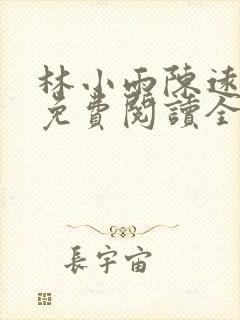 林小雨陳遠
免費閱讀全
長宇宙